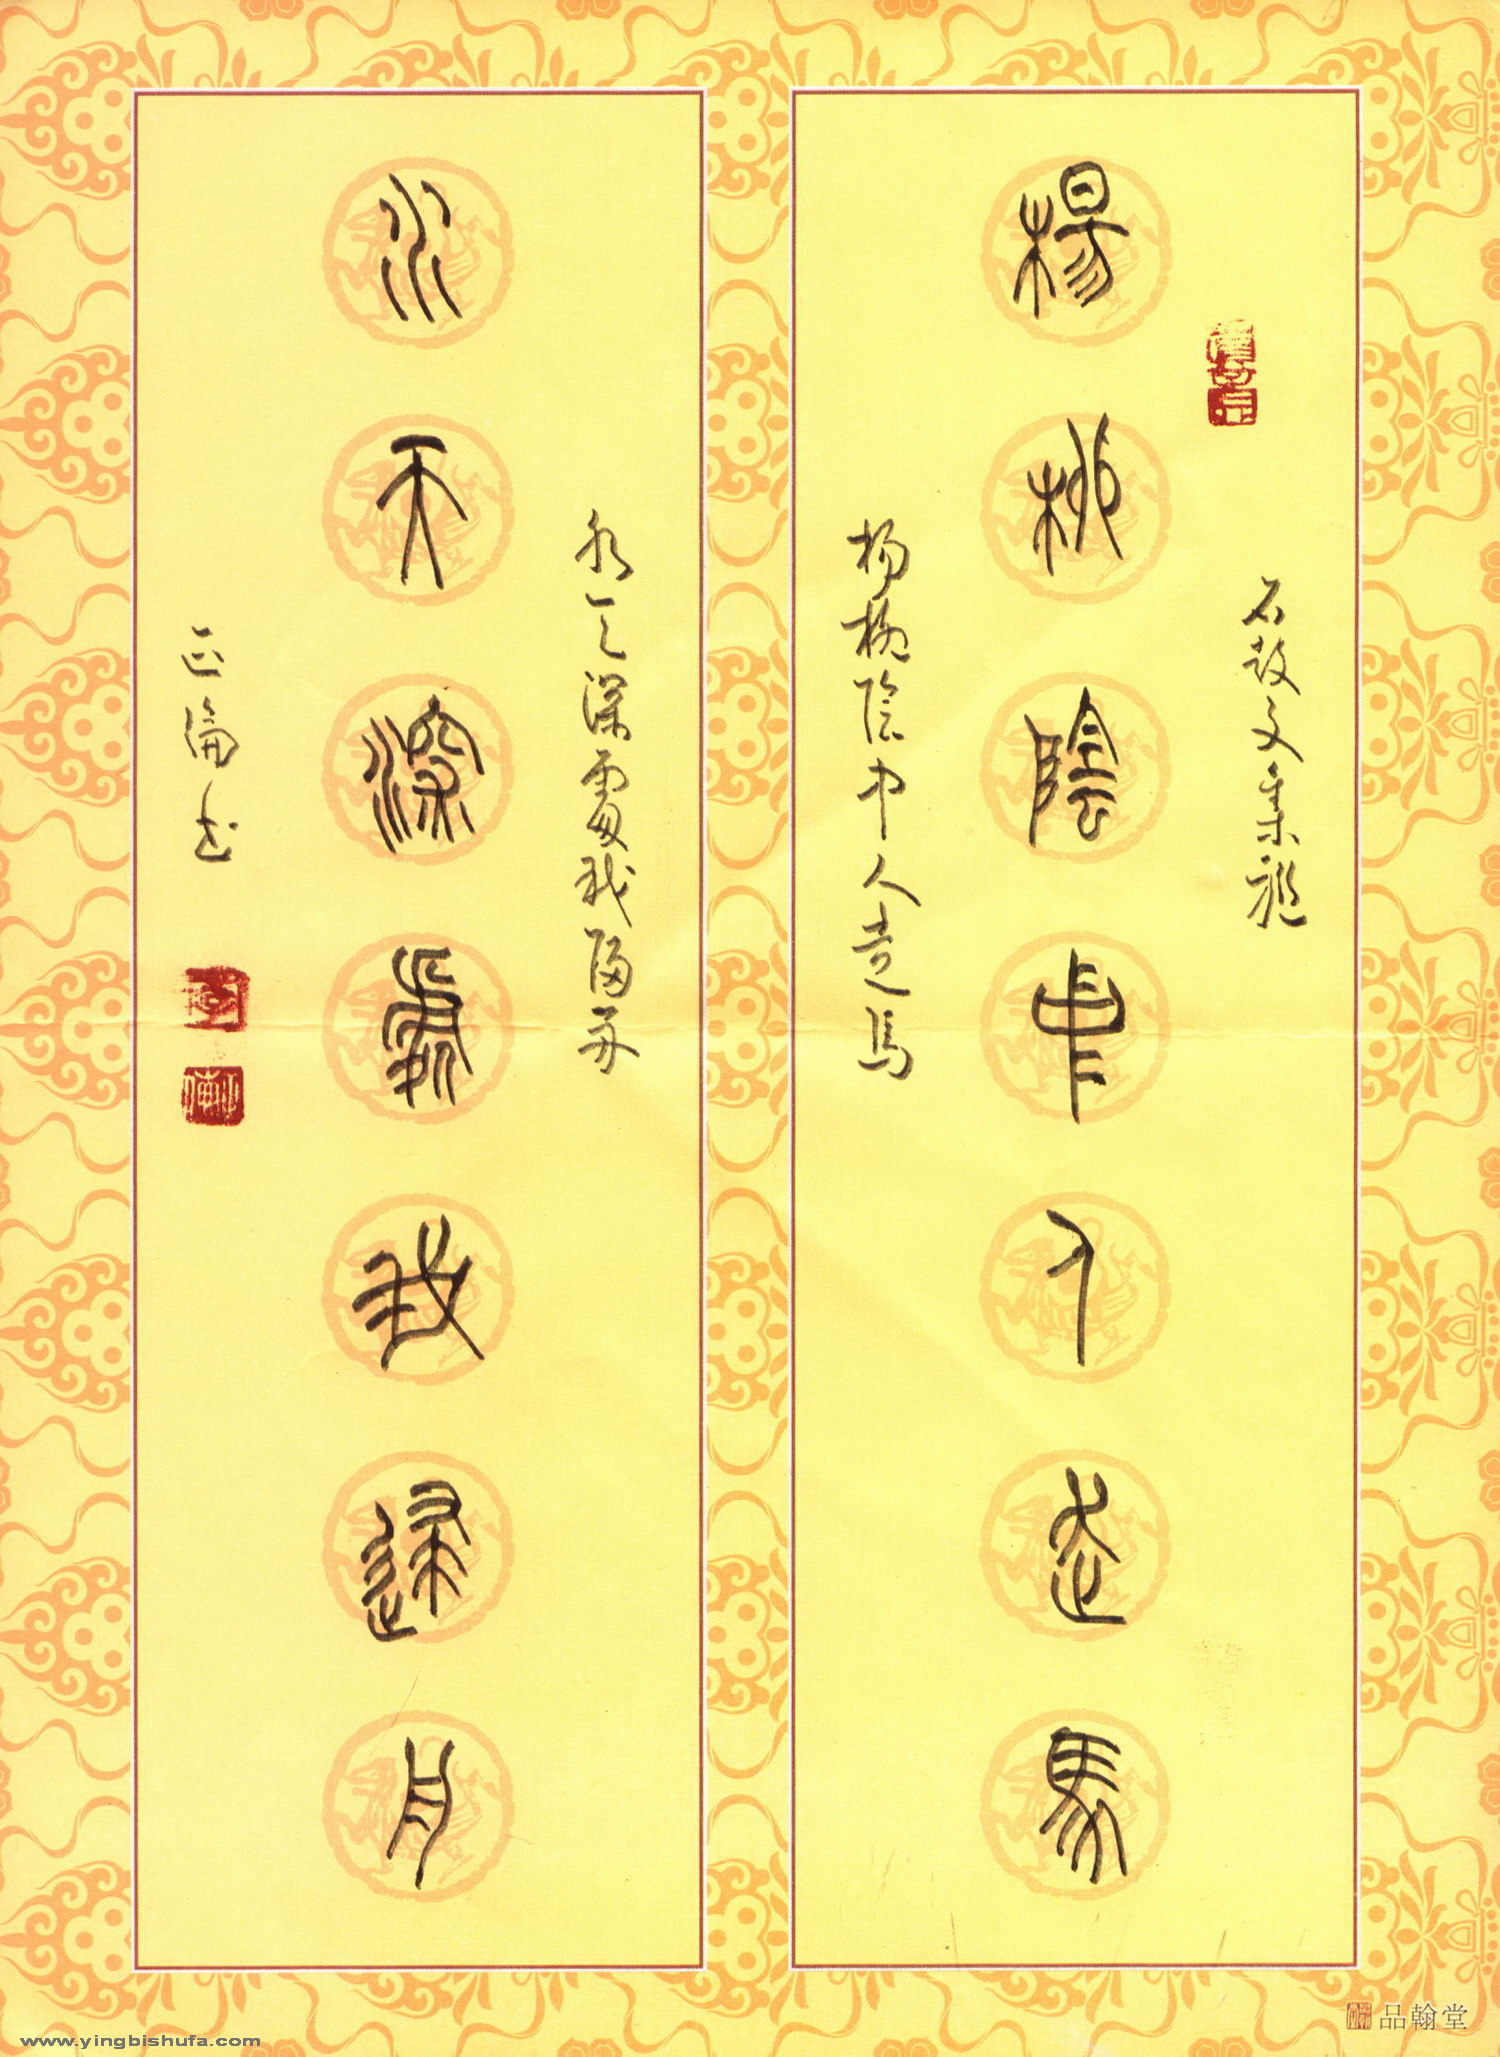 石鼓文集聯
楊柳陰中人走馬
杨柳陰中人走馬
水天深處我歸舟
水天深處我歸舟
正倫书
品翰堂
www.yingbishufa.com